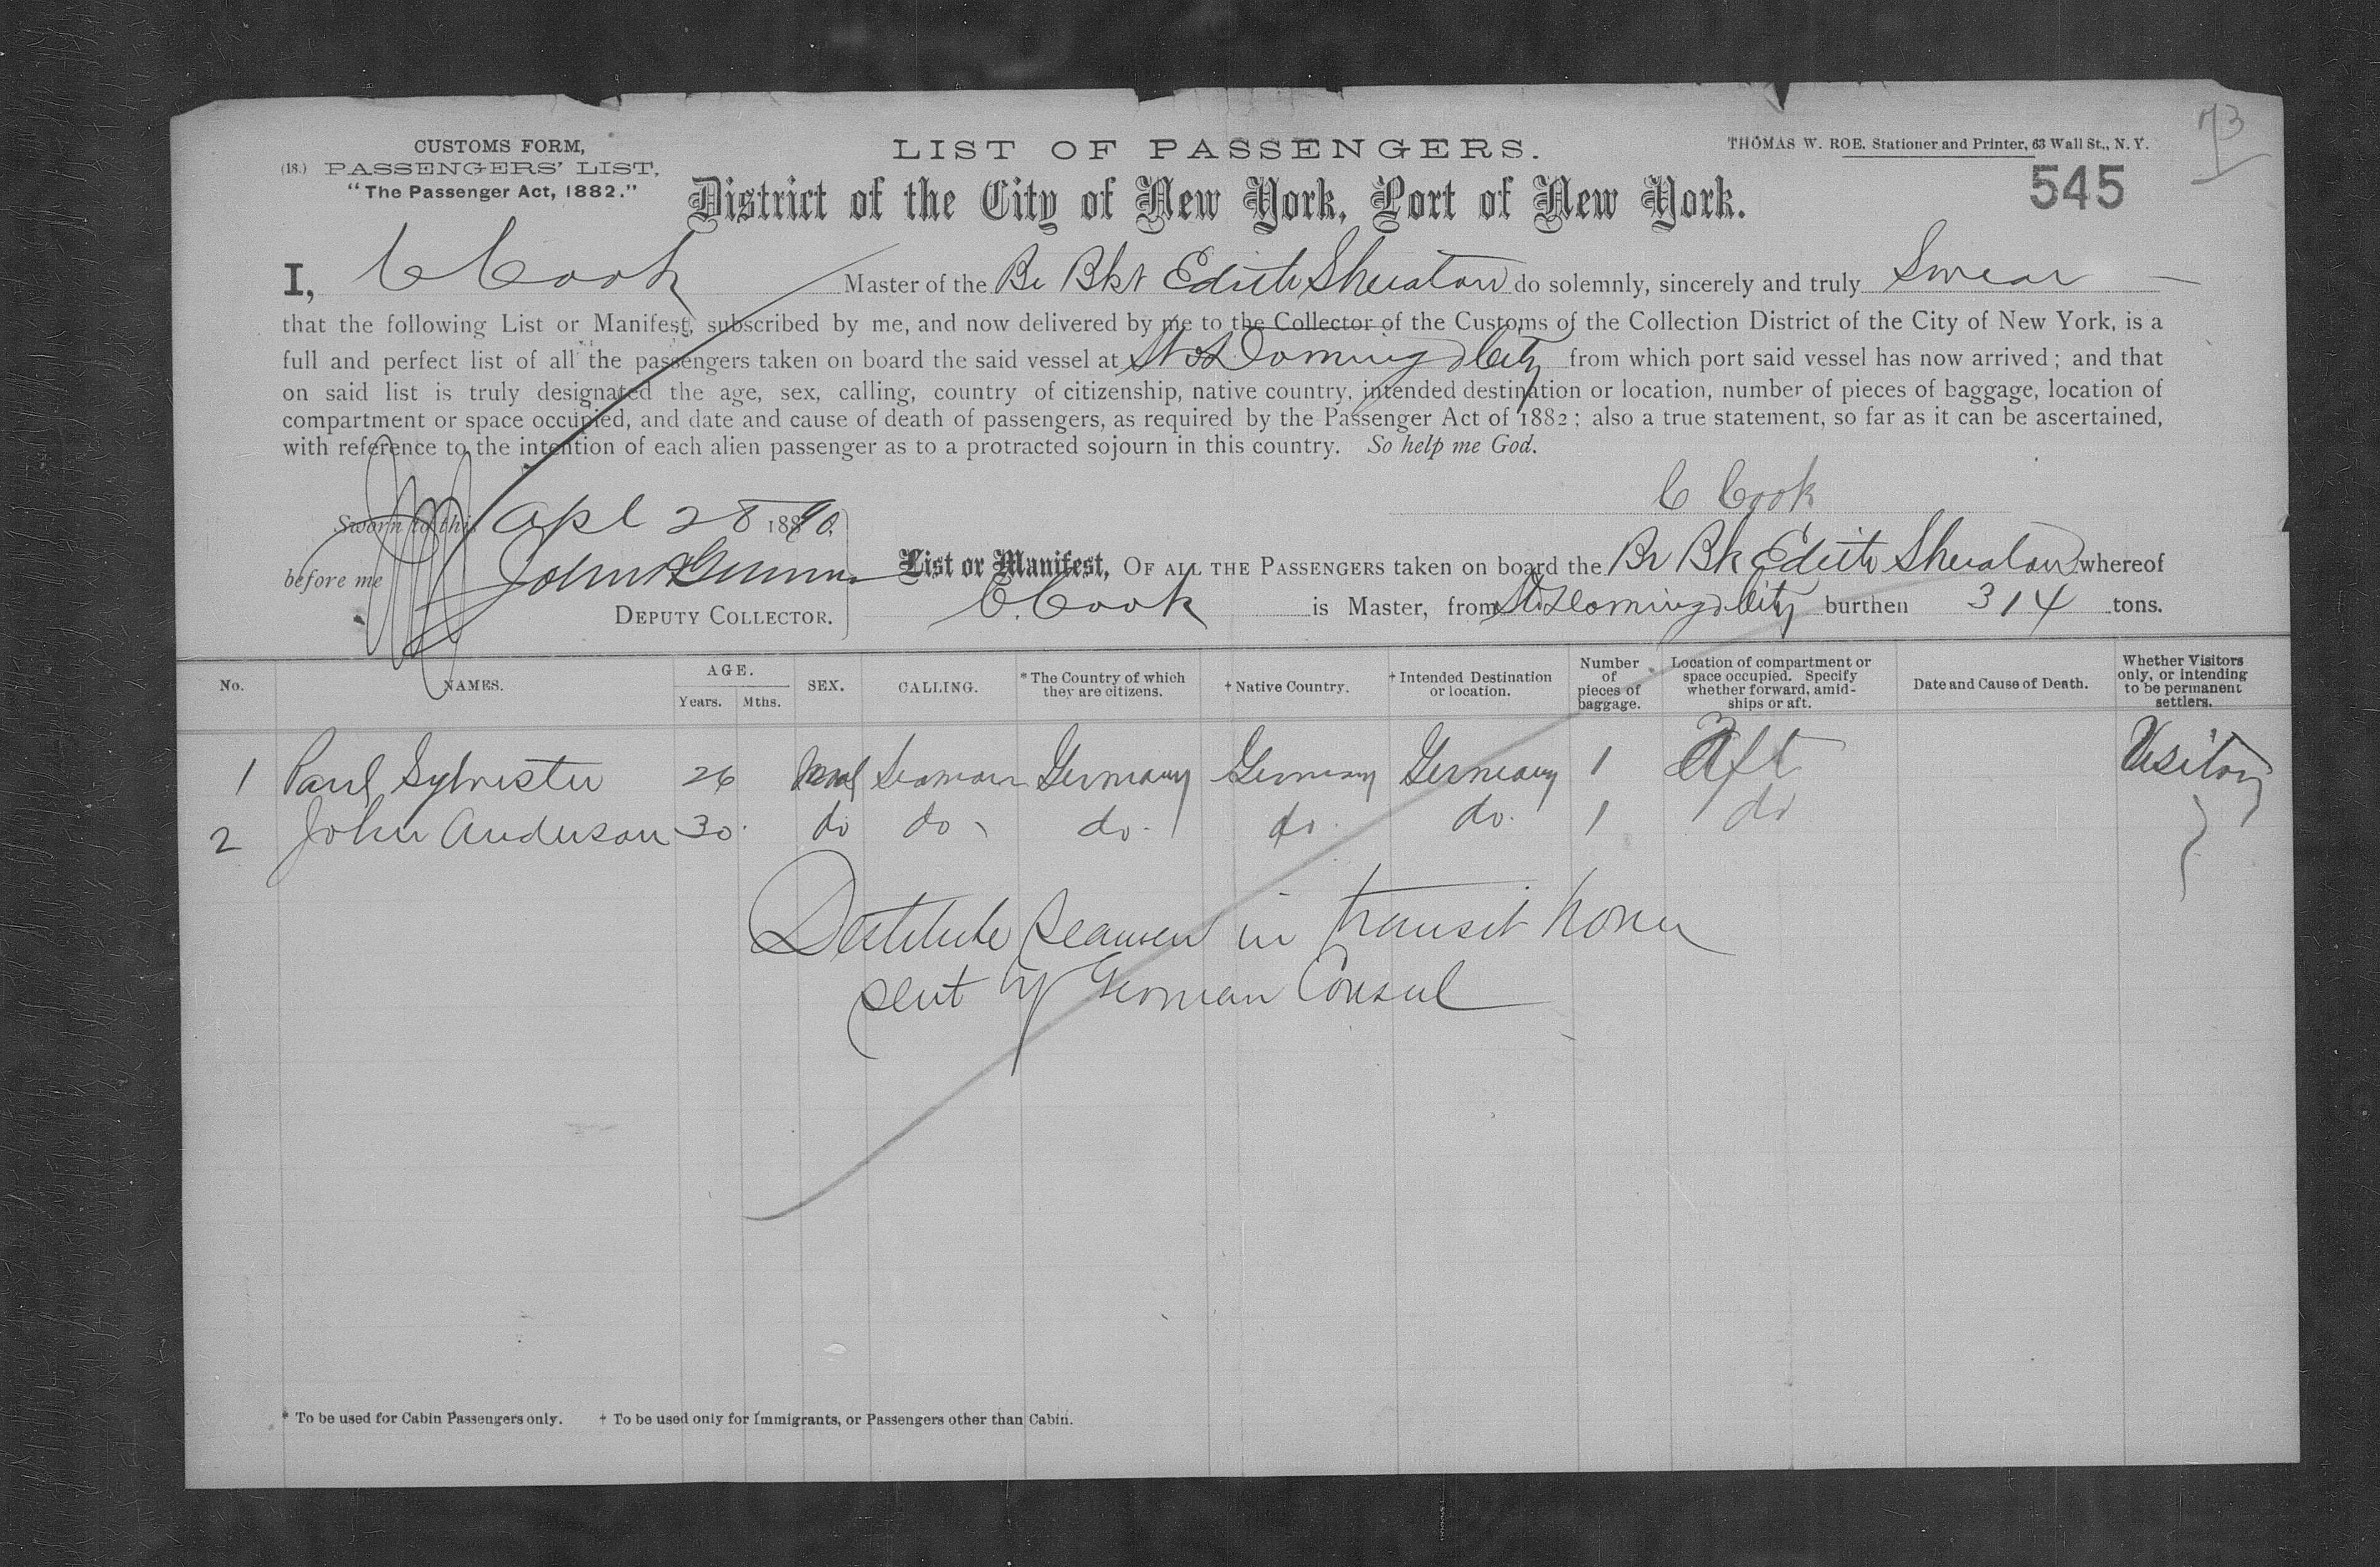 73
CUSTOMS FORM,
(18.) PASSENGERS' LIST,
"The Passenger Act, 1882."
LIST OF PASSENGERS.
THOMAS W. ROE, Stationer and Printer, 63 Wall St., N. Y.
545
District of the City of New York, Port of New York.
I, C Cook Master of the Br Bkt Edith Sheraton do solemnly, sincerely and truly Swear
that the following List or Manifest, subscribed by me, and now delivered by me to the Collector of the Customs of the Collection District of the City of New York, is a
full and perfect list of all the passengers taken on board the said vessel at Domingo City from which port said vessel has now arrived; and that
on said list is truly designated the age, sex, calling, country of citizenship, native country, intended destination or location, number of pieces of baggage, location of
compartment or space occupied, and date and cause of death of passengers, as required by the Passenger Act of 1882; also a true statement, so far as it can be ascertained,
with reference to the intention of each alien passenger as to a protracted sojourn in this country. So help me God.
C Cook
Sworn to this Apl 28 1890.
before me John
DEPUTY COLLECTOR.
List or Manifest, OF ALL THE PASSENGERS taken on board the Br Bk Edith Sheraton whereof
C. Cook is Master, from Domingo City burthen 314 tons.
No. NAMES. AGE. Years. Mths. SEX. CALLING. * The Country of which they are citizens. † Native Country. † Intended Destination or location. Number of pieces of baggage. Location of compartment or space occupied. Specify whether forward, amidships or aft. Date and Cause of Death. Whether Visitors only, or intending to be permanent settlers.
1 Paul Sylvester 26 Male Seaman Germany Germany Germany 1 Aft Visitors
2 John Anderson 30 do do do do do 1 do
Destitute Seamen in transit home
sent by German Consul
* To be used for Cabin Passengers only. † To be used only for Immigrants, or Passengers other than Cabin.